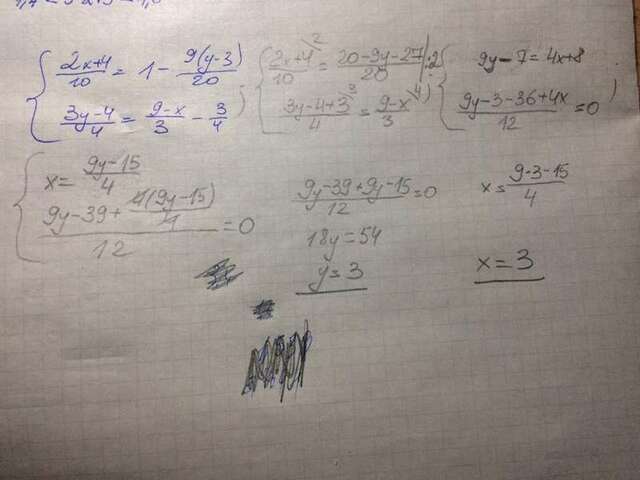 { (2x+4)/10 = 1 - 9(y-3)/20
(3y-4)/4 = (9-x)/3 - 3/4 ;
{ (2x+4)/10 = (20-9y-27)/20 |·2
(3y-4+3)/4 = (9-x)/3
{ 9y-7=4x+8
(9y-3-36+4x)/12 = 0
{ x= (9y-15)/4
(9y-39+ 4(9y-15)/4)/12 = 0
(9y-39+9y-15)/12 = 0
18y=54
y=3
x= (9·3-15)/4
x=3